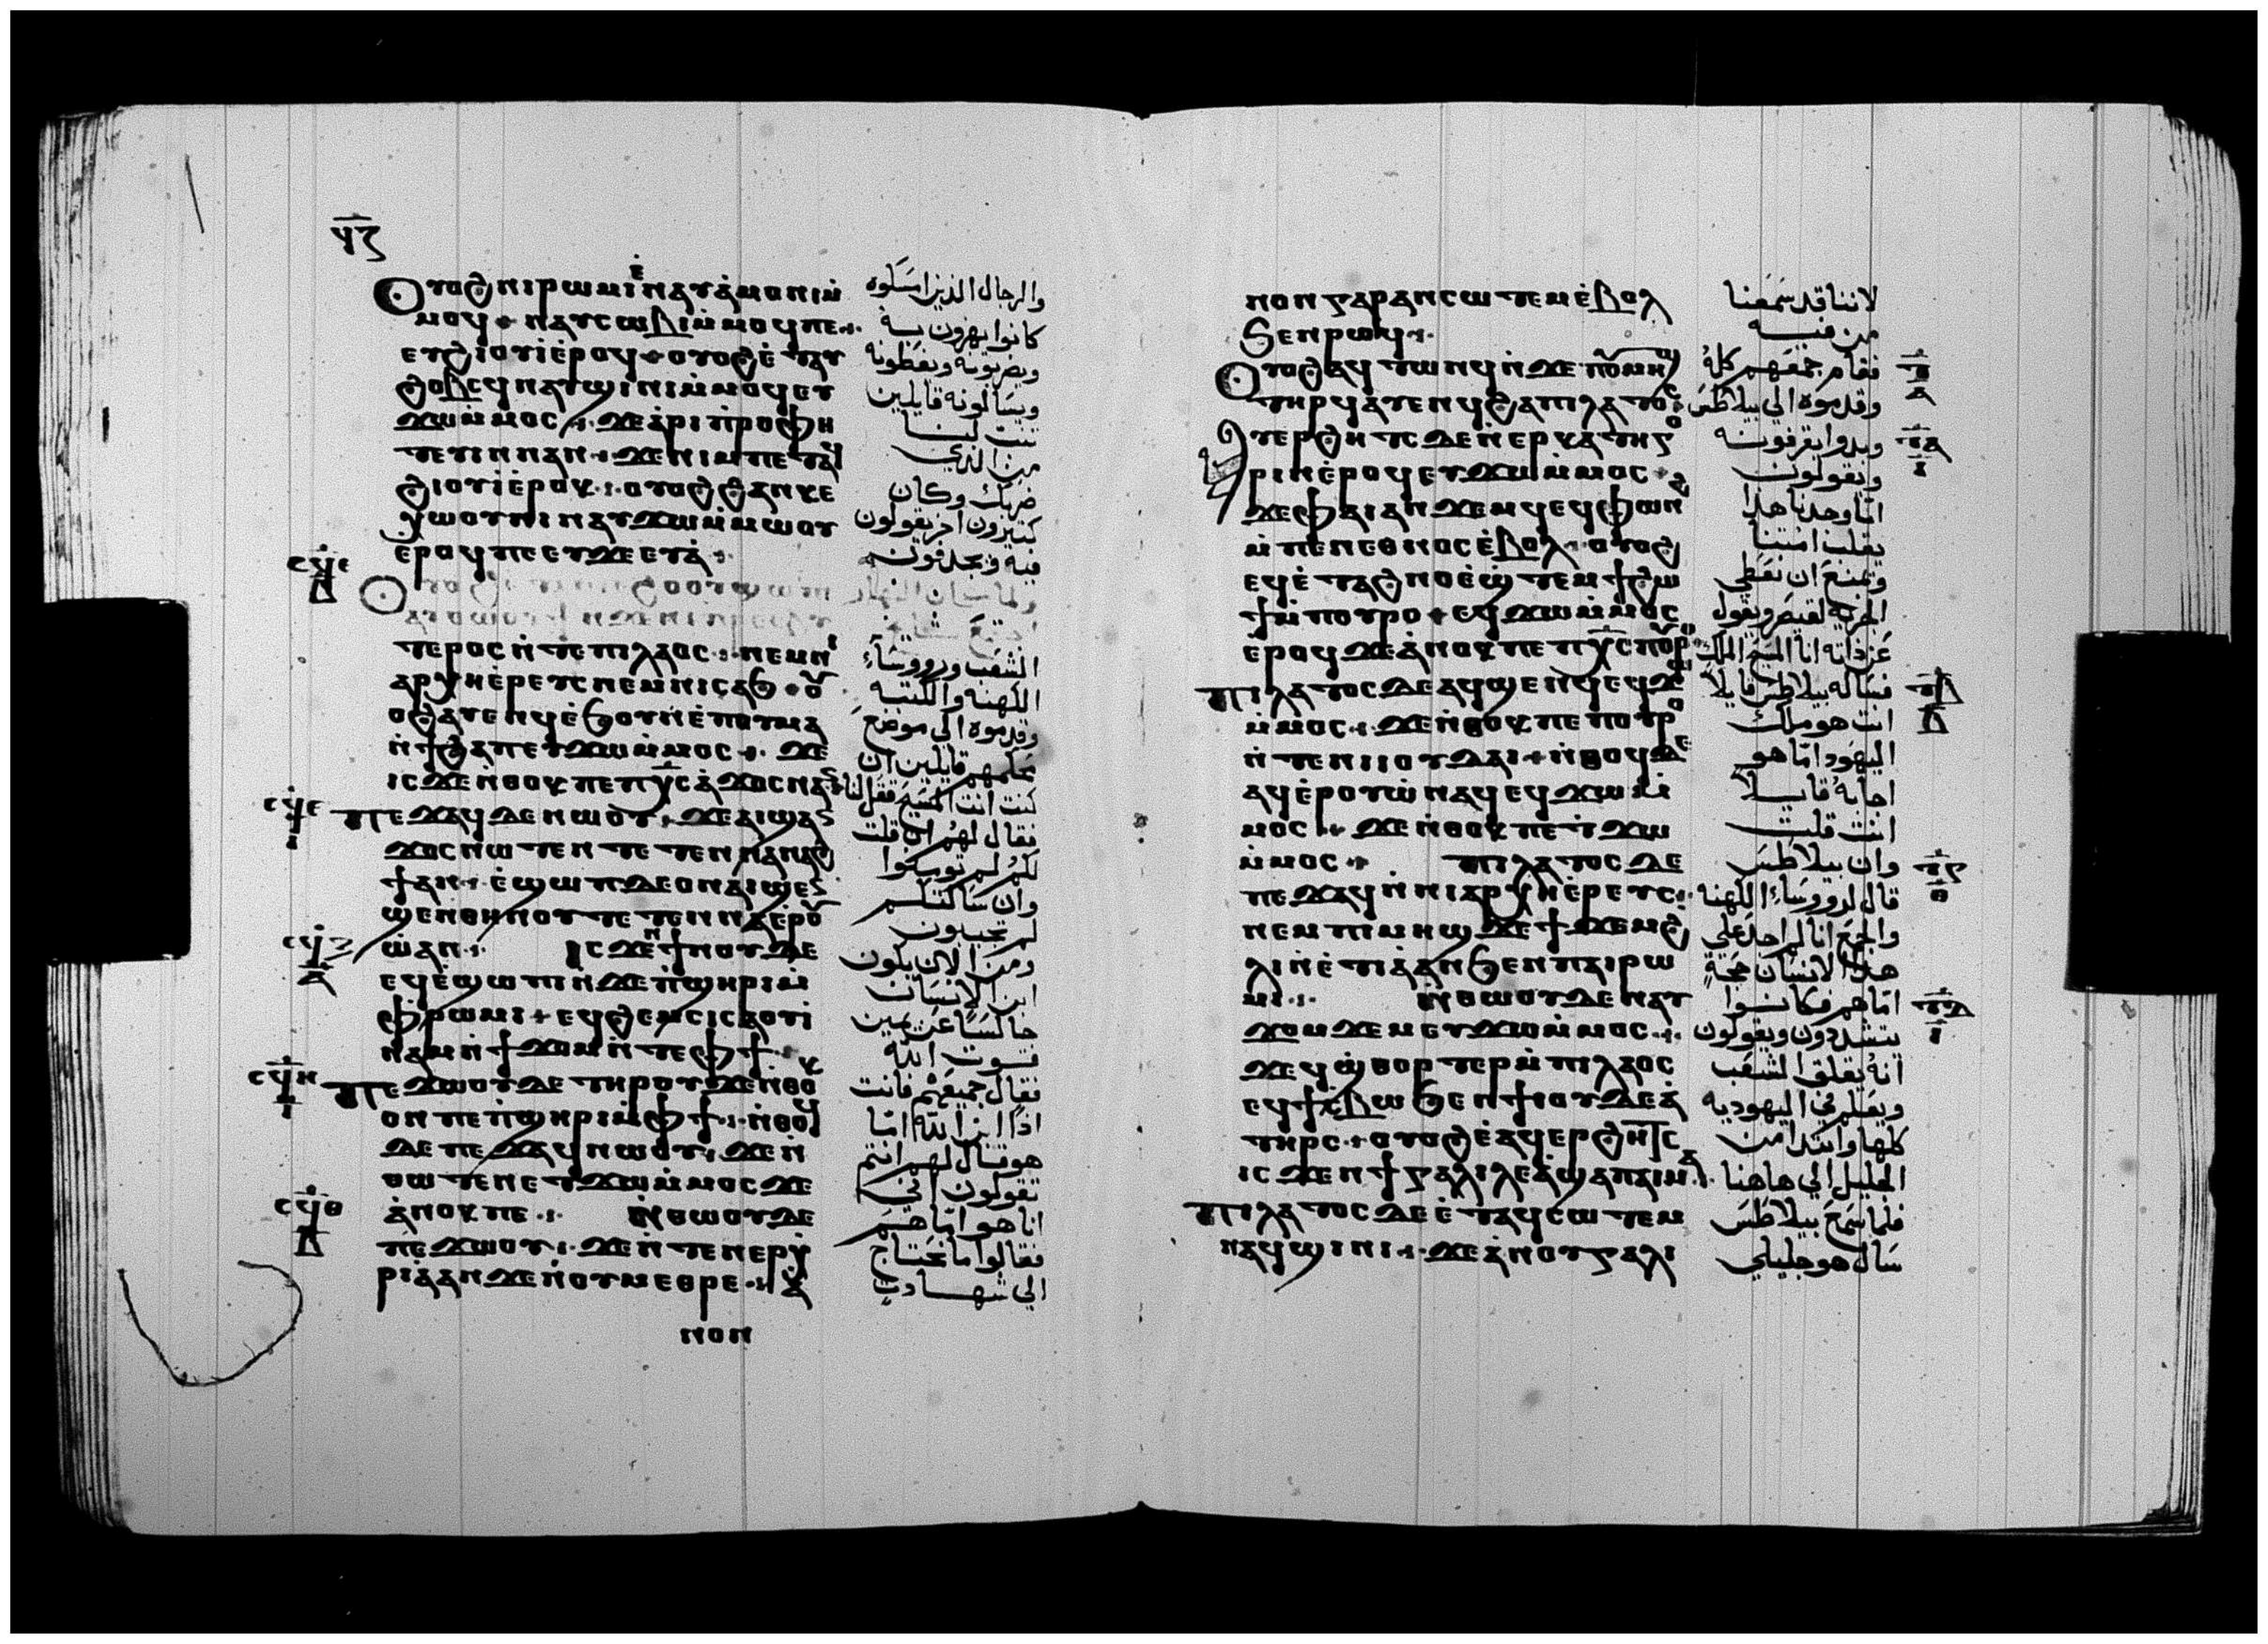 ϥⲍ
Ⲟⲩⲟϩ ⲛⲓⲣⲱⲙⲓ ⲉ̀ⲛⲁⲩⲁ̀ⲙⲟⲛⲓ ⲙ̀
ⲙⲟϥ ⲛⲁⲩⲥⲱⲃⲓ ⲙ̀ⲙⲟϥ ⲡⲉ
ⲉⲩϩⲓⲟⲩⲓ̀ ⲉ̀ⲣⲟϥ ⲟⲩⲟϩ ⲉ̀ⲧⲁⲩ
ϩⲟⲃⲥϥ ⲛⲁⲩϣⲓⲛⲓ ⲙ̀ⲙⲟϥ ⲉⲩ
ϫⲱ ⲙ̀ⲙⲟⲥ ϫⲉ ⲁ̀ⲣⲓⲡ̀ⲣⲟⲫⲏ
ⲧⲉⲩⲓⲛ ⲛⲁⲛ ϫⲉ ⲛⲓⲙ ⲡⲉⲧⲁϥ
ϩⲓⲟⲩⲓ̀ ⲉ̀ⲣⲟⲕ ⲟⲩⲟϩ ϩⲁⲛⲕⲉ
ⲭⲱⲟⲩⲛⲓ ⲛⲁⲩϫⲱ ⲙ̀ⲙⲱⲟⲩ
ⲉ̀ⲣⲟϥ ⲡⲉ
ⲧⲉⲣⲟⲥ ⲛ̀ⲧⲉ ⲡⲓⲗⲁⲟⲥ ⲛⲉⲙ ⲛⲓ
ⲁⲣⲭⲏⲉ̀ⲣⲉⲩⲥ ⲛⲉⲙ ⲛⲓⲥⲁϧ ⲟⲩ
ⲟϩ ⲁⲩⲉⲛϥ ⲉ̀ϧⲟⲩⲛ ⲉ̀ⲡⲟⲩⲙⲁ
ⲛ̀ϯϩⲁⲡ ⲉⲩϫⲱ ⲙ̀ⲙⲟⲥ ϫⲉ
ⲓⲥϫⲉ ⲛ̀ⲑⲟⲕ ⲡⲉ ⲡⲭ̅ⲥ ⲁ̀ϫⲟⲥ ⲛⲁⲛ
ⲡⲉϫⲁϥ ϫⲉ ⲛⲱⲟⲩ ϫⲉ ⲁⲓϣⲁⲛ
ϫⲟⲥ ⲛⲱⲧⲉⲛ ⲧⲉⲧⲉⲛⲛⲁⲛⲁϩ
ϯ ⲁⲛ ⲉ̀ϣⲱⲡ ⲇⲉ ⲟⲛ ⲁⲓϣⲁⲛ
ϣⲉⲛ ⲑⲏⲛⲟⲩ ⲧⲉⲧⲉⲛⲛⲁⲉ̀ⲣⲟⲩ
ⲱ̀ ⲁⲛ ⲓⲥϫⲉⲛ ϯⲛⲟⲩ ⲇⲉ
ⲉϥⲉ̀ϣⲱⲡⲓ ⲛ̀ϫⲉ ⲡ̀ϣⲏⲣⲓ ⲙ̀
ⲫ̀ⲣⲱⲙⲓ ⲉϥϩⲉⲙⲥⲓ ⲥⲁⲟⲩⲓ̀
ⲛⲁⲙ ⲛ̀ϯϫⲟⲙ ⲛ̀ⲧⲉ ⲫϯ
ⲡⲉϫⲱⲟⲩ ⲇⲉ ⲧⲏⲣⲟⲩ ϫⲉ ⲛ̀ⲑⲟⲕ
ⲟⲛ ⲡⲉ ⲡ̀ϣⲏⲣⲓ ⲙ̀ⲫϯ ⲛ̀ⲑⲟϥ
ⲇⲉ ⲡⲉϫⲁϥ ⲛⲱⲟⲩ ϫⲉ ⲛ̀
ⲑⲱⲧⲉⲛ ⲉⲧϫⲱ ⲙ̀ⲙⲟⲥ ϫⲉ
ⲁ̀ⲛⲟⲕ ⲡⲉ ⲛ̀ⲑⲱⲟⲩ ⲇⲉ
ⲡⲉϫⲱⲟⲩ ϫⲉ ⲛ̀ⲧⲉⲛⲉⲣⲭ
ⲣⲓⲁ̀ ⲁⲛ ϫⲉ ⲛ̀ⲟⲩⲙⲉⲑⲣⲉ ⲁ̀
ⲛⲟⲛ
والرجال الذين امسكوه
كانوا يهزون به
ويضربونه ويغطونه
ويسألونه قايلين
تنبّ لنا
من الذي
ضربك وكان
كثيرون اخر يقولون
فيه ويجدفون
الشعب وروساء
الكهنه والكتبه
وقدموه الى موضع
حكمهم قايلين ان
كنت انت المسيح فقل لنا
فقال لهم ان قلت
لكم لم تومنوا
وان سألتكم
لم تجيبون
ومن الان يكون
ابن الانسان
جالسا عن يمين
قوت الله
فقال جميعهم فانت
اذا ابن الله امّا
هو فقال لهم انتم
تقولون اني
انا هو امّا هم
فقالوا ما نحتاج
الى شهادة
ⲛⲟⲛ ⲅⲁⲣ ⲁⲛⲥⲱⲧⲉⲙ ⲉ̀ⲃⲟⲗ
ϧⲉⲛ ⲣⲱϥ
Ⲟⲩⲟϩ ⲁϥⲧⲱⲛϥ ⲛ̀ϫⲉ ⲡⲟⲩⲙⲏϣ
ⲧⲏⲣϥ ⲁⲩⲉⲛϥ ϩⲁ ⲡⲓⲗⲁⲧⲟⲥ
ⲁⲩⲉⲣϩⲏⲧⲥ ⲇⲉ ⲛ̀ⲉⲣⲕⲁⲧⲏⲅⲟ
ⲣⲓⲛ ⲉ̀ⲣⲟϥ ⲉⲩϫⲱ ⲙ̀ⲙⲟⲥ
ϫⲉ ⲫⲁⲓ ⲁⲛϫⲉⲙϥ ⲉϥⲫⲱⲛϩ
ⲙ̀ⲡⲉⲛⲉⲑⲛⲟⲥ ⲉ̀ⲃⲟⲗ ⲟⲩⲟϩ
ⲉϥⲉ̀ⲧⲁϩⲛⲟ ⲉ̀ϣ̀ⲧⲉⲙϯϩⲱ
ϯ ⲙ̀ⲡⲟⲩⲣⲟ ⲉϥϫⲱ ⲙ̀ⲙⲟⲥ
ⲉ̀ⲣⲟϥ ϫⲉ ⲁ̀ⲛⲟⲕ ⲡⲉ ⲡⲭ̅ⲥ ⲡⲟⲩⲣⲟ
ⲡⲓⲗⲁⲧⲟⲥ ⲇⲉ ⲁϥϣⲉⲛϥ ⲉϥϫⲱ
ⲙ̀ⲙⲟⲥ ϫⲉ ⲛ̀ⲑⲟⲕ ⲡⲉ ⲡⲟⲩⲣⲟ
ⲛ̀ⲧⲉ ⲛⲓⲓⲟⲩⲇⲁⲓ ⲛ̀ⲑⲟϥ ⲇⲉ
ⲁϥⲉ̀ⲣⲟⲩⲱ̀ ⲛⲁϥ ⲉϥϫⲱ ⲙ̀
ⲙⲟⲥ ϫⲉ ⲛ̀ⲑⲟⲕ ⲡⲉⲧϫⲱ
ⲙ̀ⲙⲟⲥ ⲡⲓⲗⲁⲧⲟⲥ ⲇⲉ
ⲡⲉϫⲁϥ ⲛ̀ⲛⲓⲁⲣⲭⲏⲉ̀ⲣⲉⲩⲥ
ⲛⲉⲙ ⲡⲓⲙⲏϣ ϫⲉ ϯϫⲉⲙ ϩ
ⲗⲓ ⲛ̀ⲉⲧⲓⲁ̀ ⲁⲛ ϧⲉⲛ ⲡⲁⲓⲣⲱ
ⲙⲓ ⲛ̀ⲑⲱⲟⲩ ⲇⲉ ⲛⲁⲩ
ϫⲟⲙϫⲉⲙ ⲉⲩϫⲱ ⲙ̀ⲙⲟⲥ
ϫⲉ ϥϣ̀ⲑⲟⲣⲧⲉⲣ ⲙ̀ⲡⲓⲗⲁⲟⲥ
ⲉϥϯⲥ̀ⲃⲱ ϧⲉⲛ ϯⲓⲟⲩⲇⲉⲁ̀
ⲧⲏⲣⲥ ⲟⲩⲟϩ ⲉ̀ⲁϥⲉⲣϩⲏⲧⲥ
ⲓⲥϫⲉⲛ ϯⲅⲁⲗⲓⲗⲉⲁ̀ ϣⲁ ⲡⲁⲓⲙⲁ
ⲡⲓⲗⲁⲧⲟⲥ ⲇⲉ ⲉ̀ⲧⲁϥⲥⲱⲧⲉⲙ
ⲛⲁϥϣⲓⲛⲓ ϫⲉ ⲁ̀ⲛ ⲟⲩⲅⲁⲗⲓ
لاننا قد سمعنا
من فيه
فقام جمعهم كله
وقدموه الى بيلاطس
وبدوا يقرفونه
ويقولون
انّا وجدنا هذا
يقلب امتنا
ويمنع ان نعطى
الجزية لقيصر ويقول
عن ذاته انا المسيح الملك
فسأله بيلاطس قايلا
انت هو ملك
اليهود امّا هو
اجابه قايلا
انت قلت
وان بيلاطس
قال لروساء الكهنه
والجمع انا لم اجد على
هذا الانسان حجة
امّا هم فكانوا
يتشددون ويقولون
انه يقلق الشعب
ويعلم في اليهوديه
كلها وابتدا من
الجليل الى هاهنا
فلما سمع بيلاطس
سال هو جليلي